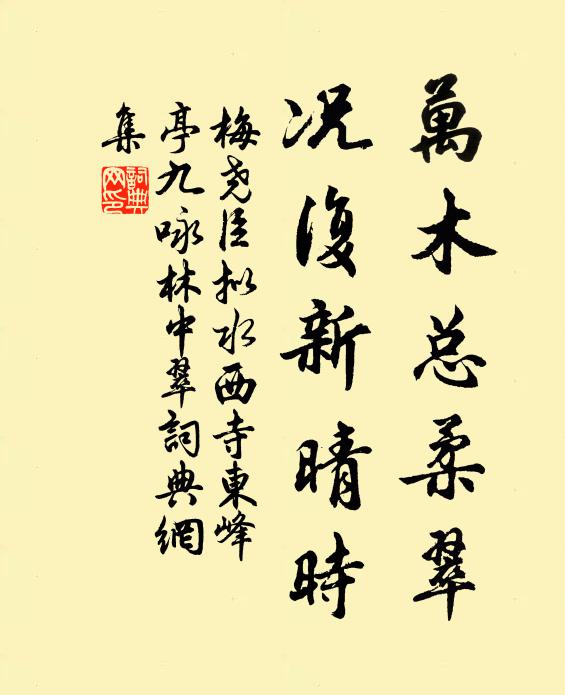 萬木总柔翠
况復新晴時
梅尧臣拟水西寺東峰
亭九咏林中翠詞典網
集
詞典
网印